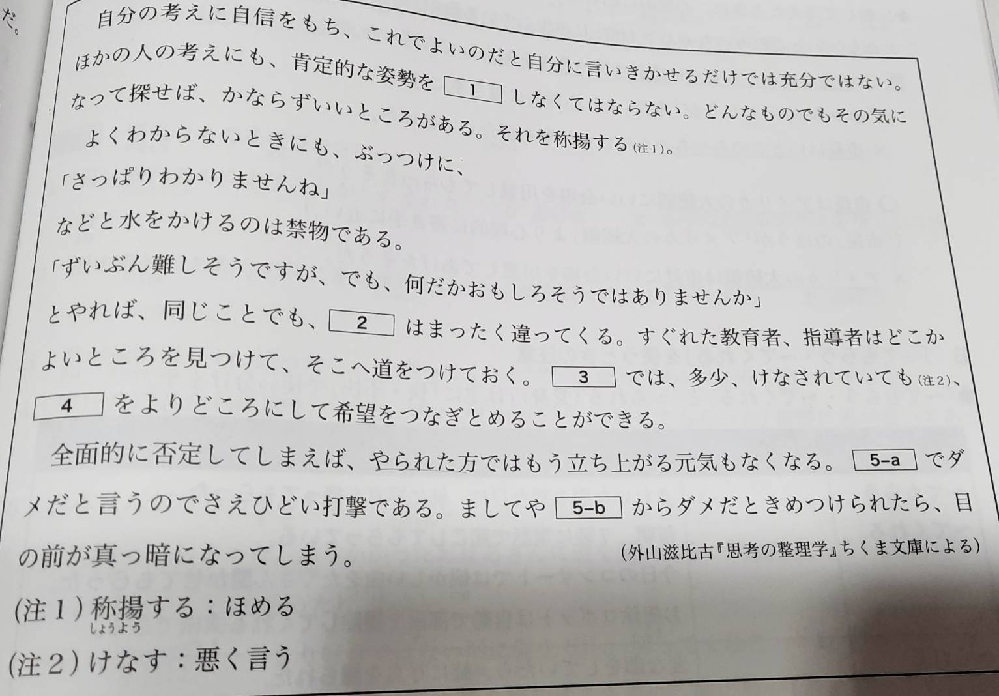 だ。
自分の考えに自信をもち、これでよいのだと自分に言いきかせるだけでは充分ではない。
ほかの人の考えにも、肯定的な姿勢を 1 しなくてはならない。どんなものでもその気に
なって探せば、かならずいいところがある。それを称揚する(注1)。
よくわからないときにも、ぶっつけに、
「さっぱりわかりませんね」
などと水をかけるのは禁物である。
「ずいぶん難しそうですが、でも、何だかおもしろそうではありませんか」
とやれば、同じことでも、 2 はまったく違ってくる。すぐれた教育者、指導者はどこか
よいところを見つけて、そこへ道をつけておく。 3 では、多少、けなされていても(注2)、
4 をよりどころにして希望をつなぎとめることができる。
全面的に否定してしまえば、やられた方ではもう立ち上がる元気もなくなる。 5-a でダ
メだと言うのでさえひどい打撃である。ましてや 5-b からダメだときめつけられたら、目
の前が真っ暗になってしまう。
(外山滋比古『思考の整理学』ちくま文庫による)
(注1)称揚する:ほめる
しょうよう
(注2)けなす:悪く言う